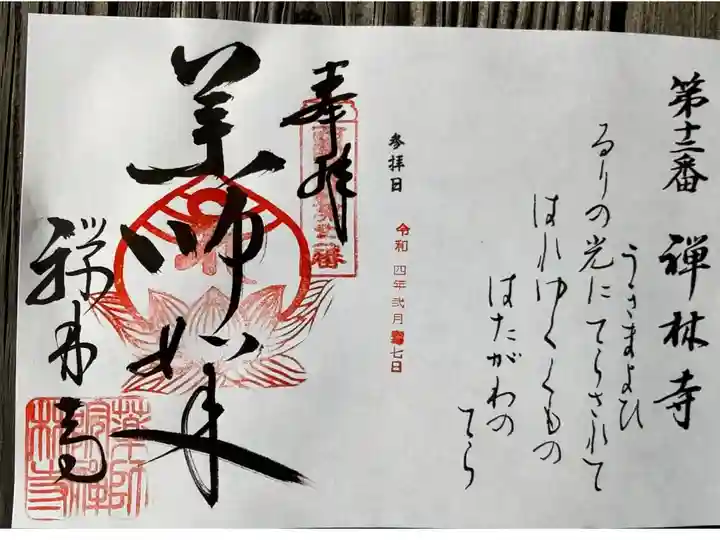 第十二番 禅林寺
るりの光にてらされて
うきまよひ
はれゆくくもの
はたがわの
てら
参拝日
令和四年弐月七日
奉拝
薬師如来
禅林寺